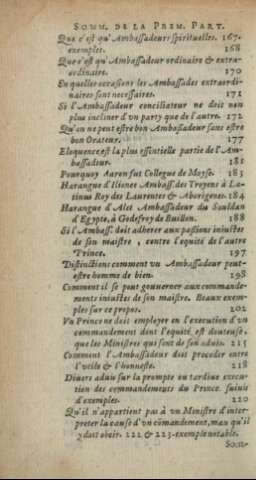 SOMM. DE LA PREM. PART.
Que c'est qu'Ambassadeurs spirituelles. 167.
exemples. 168
Que c'est qu'Ambassadeur ordinaire & extra-
ordinaire. 170
En quelles occasions les Ambassades extraordi-
naires sont necessaires. 171
Si l'Ambassadeur conciliateur ne doit non
plus incliner d'un party que de l'autre. 172
Qu'on ne peut estre bon Ambassadeur sans estre
bon Orateur. 177
Eloquence est la plus essentielle partie de l'Am-
bassadeur. 181
Pourquoy Aaron fut Collegue de Moyse. 183
Harangue d'Ilionee Ambass. des Troyens à La-
tinus Roy des Laurentes & Aborigenes. 184
Harangue d'Alet Ambassadeur du Souldan
d'Egypte, à Godefroy de Buillon. 188
Si l'Ambass. doit adherer aux passions iniustes
de son maistre, contre l'equité de l'autre
Prince. 197
Distinctions comment vn Ambassadeur peut-
estre homme de bien. 198
Comment il se peut gouuerner aux commande-
ments iniustes de son maistre. Beaux exem-
ples sur ce propos. 202
Vn Prince ne doit employer en l'execution d'un
commandement dont l'equité est douteuse,
que les Ministres qui sont de son aduis. 215
Comment l'Ambassadeur doit proceder entre
l'vtile & l'honneste. 218
Diuers aduis sur la prompte ou tardiue execu-
tion des commandements du Prince. suiuis
d'exemples. 220
Qu'il n'appartient pas à vn Ministre d'inter-
preter la cause d'vn cõmandement, mau qu'il
y doit obeir. 222 & 223. exemple notable.
Som-